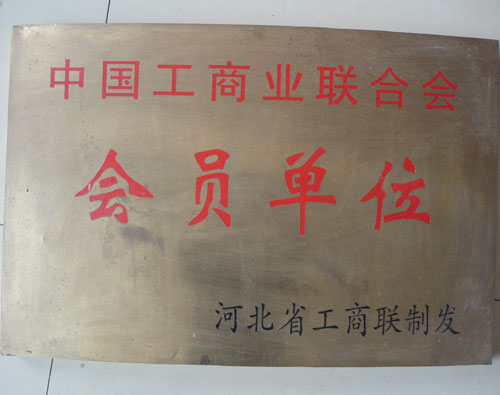 中国工商业联合会
会员单位
河北省工商联制发